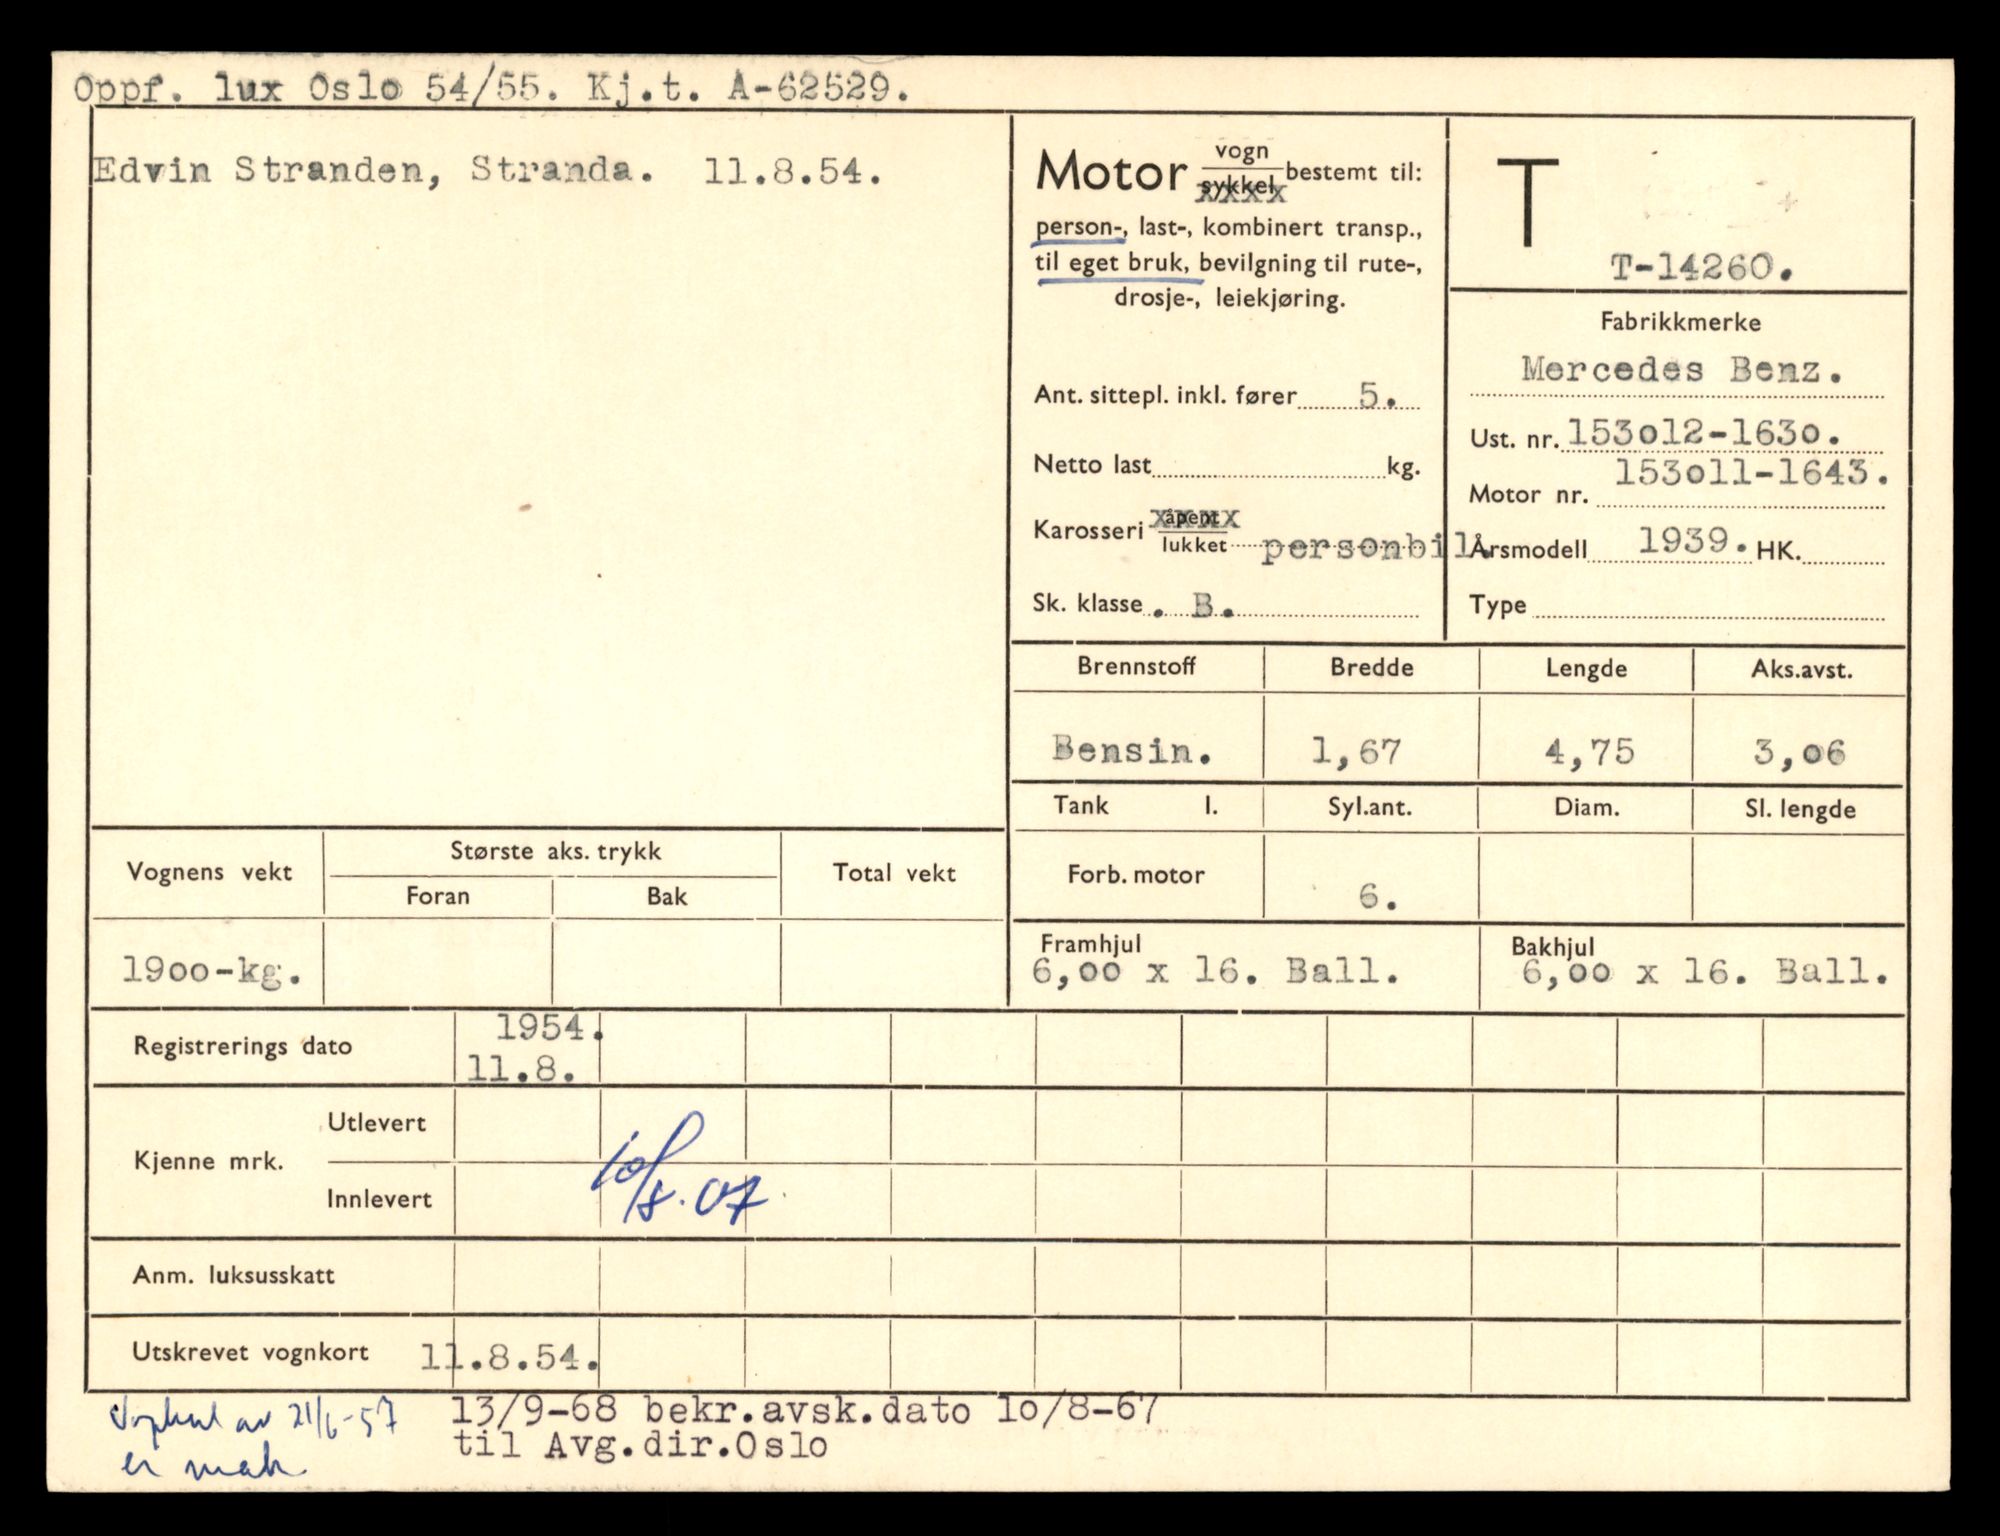 Oppf. lux Oslo 54/55. Kj.t. A-62529.
Edvin Stranden, Stranda. 11.8.54.
Motor vogn sykkel bestemt til:
person-, last-, kombinert transp.,
til eget bruk, bevilgning til rute-,
drosje-, leiekjøring.
Ant. sittepl. inkl. fører 5.
Netto last kg.
Karosseri åpent lukket personbil.
Sk. klasse . B.
T
T-14260.
Fabrikkmerke
Mercedes Benz.
Ust. nr. 153o12-163o.
Motor nr. 153o11-1643.
Årsmodell 1939. HK.
Type
Brennstoff Bredde Lengde Aks.avst.
Bensin. 1,67 4,75 3,o6
Tank l. Syl.ant. Diam. Sl. lengde
Forb. motor 6.
Framhjul Bakhjul
6,oo x 16. Ball. 6,oo x 16. Ball.
Vognens vekt Største aks. trykk Total vekt
Foran Bak
19oo-kg.
Registrerings dato 1954.
11.8.
Kjenne mrk. Utlevert
Innlevert
10/8.67
Anm. luksusskatt
Utskrevet vognkort 11.8.54.
av 21/6-57
er mak
13/9-68 bekr.avsk.dato 1o/8-67
til Avg.dir.Oslo